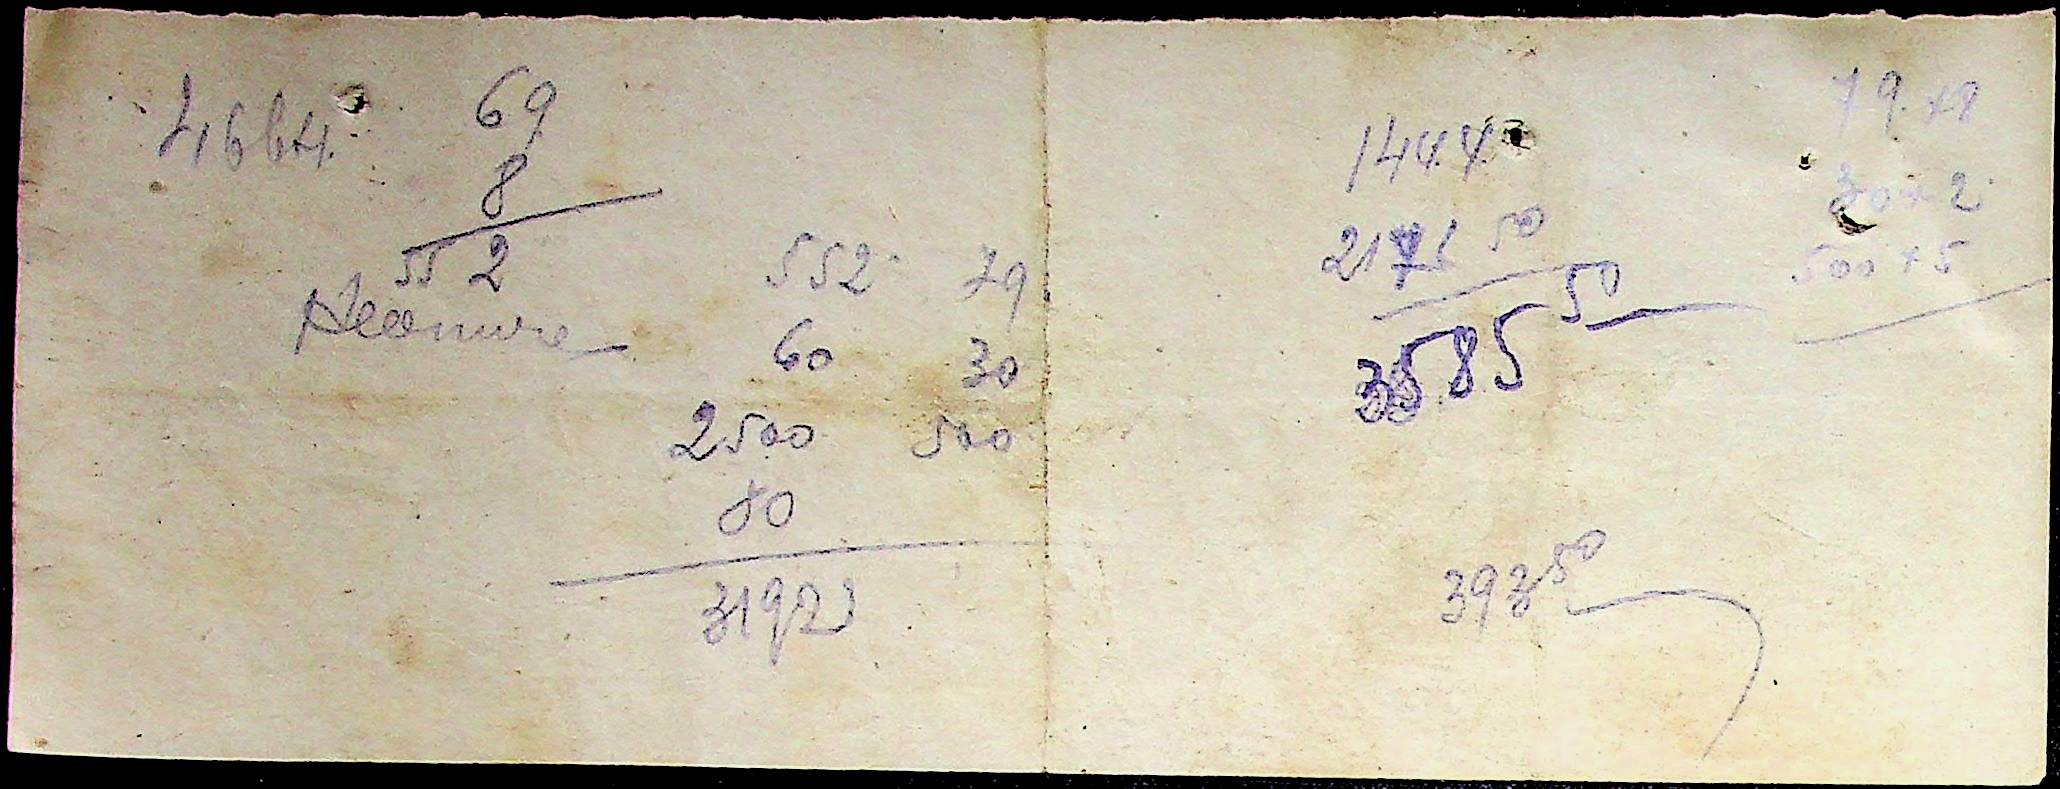 4664. 69
8
552
552 79
60 30
2500 500
80
3192
1444
2175 50
3585 50
393 50
79 × 8
30 × 2
500 × 5